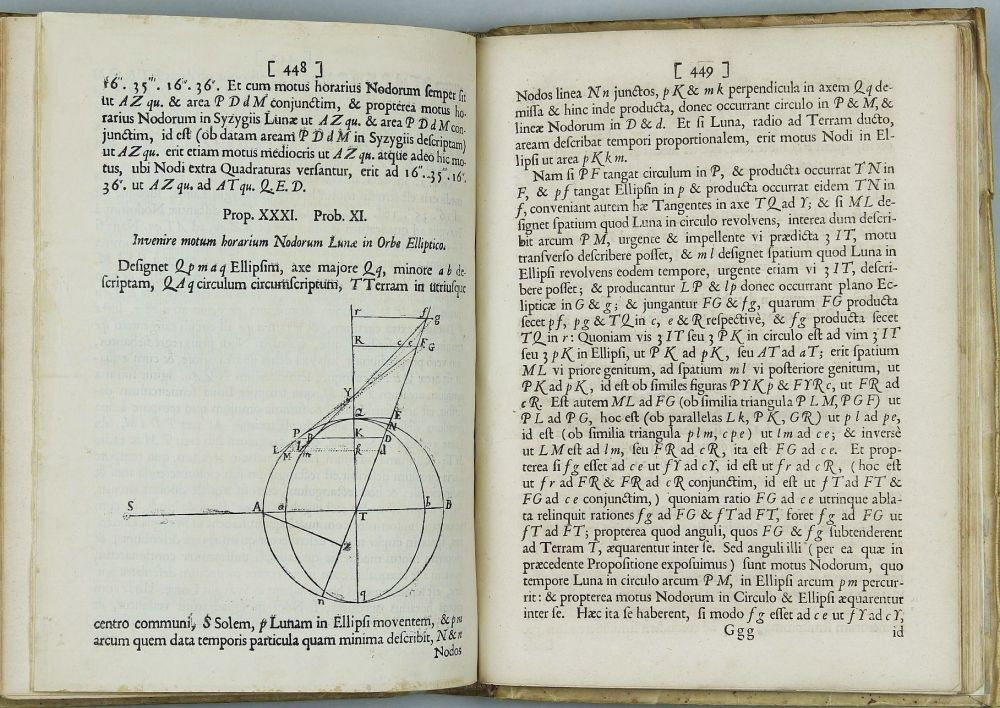 [ 448 ]
16″. 35‴. 16ⁱᵛ. 36ᵛ. Et cum motus horarius Nodorum semper sit
ut AZ qu. & area PDdM conjunctim, & propterea motus ho-
rarius Nodorum in Syzygiis Lunæ ut AZ qu. & area PDdM con-
junctim, id est (ob datam aream PDdM in Syzygiis descriptam)
ut AZ qu. erit etiam motus mediocris ut AZ qu. atque adeo hic mo-
tus, ubi Nodi extra Quadraturas versantur, erit ad 16″. 35‴. 16ⁱᵛ.
36ᵛ. ut AZ qu. ad AT qu. Q.E.D.
Prop. XXXI. Prob. XI.
Invenire motum horarium Nodorum Lunæ in Orbe Elliptico.
Designet Qpmaq Ellipsim, axe majore Qq, minore ab de-
scriptam, QAq circulum circumscriptum, T Terram in utriusque
r f g
R c e F G
Y
Q E
N
P p K D
L M l m k d
S A a T b B
Z
n q
centro communi, S Solem, p Lunam in Ellipsi moventem, & pm
arcum quem data temporis particula quam minima describit, N & n
Nodos
[ 449 ]
Nodos linea Nn junctos, pK & mk perpendicula in axem Qq de-
missa & hinc inde producta, donec occurrant circulo in P & M, &
lineæ Nodorum in D & d. Et si Luna, radio ad Terram ducto,
aream describat tempori proportionalem, erit motus Nodi in El-
lipsi ut area pKkm.
Nam si PF tangat circulum in P, & producta occurrat TN in
F, & pf tangat Ellipsin in p & producta occurrat eidem TN in
f, conveniant autem hæ Tangentes in axe TQ ad Y; & si ML de-
signet spatium quod Luna in circulo revolvens, interea dum descri-
bit arcum PM, urgente & impellente vi prædicta 3IT, motu
transverso describere posset, & ml designet spatium quod Luna in
Ellipsi revolvens eodem tempore, urgente etiam vi 3IT, descri-
bere posset; & producantur LP & lp donec occurrant plano Ec-
lipticæ in G & g; & jungantur FG & fg, quarum FG producta
secet pf, pg & TQ in c, e & R respective, & fg producta secet
TQ in r: Quoniam vis 3IT seu 3PK in circulo est ad vim 3IT
seu 3pK in Ellipsi, ut PK ad pK, seu AT ad aT; erit spatium
ML vi priore genitum, ad spatium ml vi posteriore genitum, ut
PK ad pK, id est ob similes figuras PYKp & FYRc, ut FR ad
cR. Est autem ML ad FG (ob similia triangula PLM, PGF) ut
PL ad PG, hoc est (ob parallelas Lk, PK, GR) ut pl ad pe,
id est (ob similia triangula plm, cpe) ut lm ad ce; & inverse
ut LM est ad lm, seu FR ad cR, ita est FG ad ce. Et prop-
terea si fg esset ad ce ut fY ad cY, id est ut fr ad cR, (hoc est
ut fr ad FR & FR ad cR conjunctim, id est ut fT ad FT &
FG ad ce conjunctim,) quoniam ratio FG ad ce utrinque abla-
ta relinquit rationes fg ad FG & fT ad FT, foret fg ad FG ut
fT ad FT; propterea quod anguli, quos FG & fg subtenderent
ad Terram T, æquarentur inter se. Sed anguli illi (per ea quæ in
præcedente Propositione exposuimus) sunt motus Nodorum, quo
tempore Luna in circulo arcum PM, in Ellipsi arcum pm percur-
rit: & propterea motus Nodorum in Circulo & Ellipsi æquarentur
inter se. Hæc ita se haberent, si modo fg esset ad ce ut fY ad cY,
Ggg id